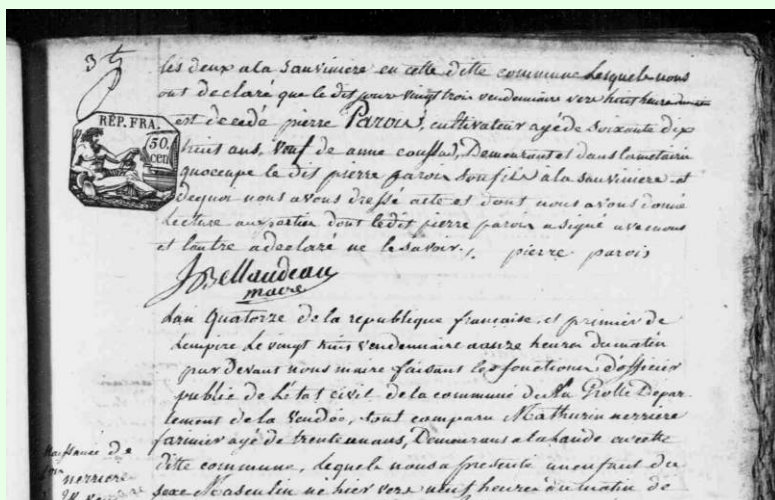 3
les deux a la Sauviniere en cette ditte commune lesquels nous
ont declaré que le dit jour vingt trois vendemiaire vers huit heure
RÉP. FRA.
50.
cen
est decedé pierre Parois, cultivateur agé de Soixante dix
huit ans, veuf de anne coussad, Demourant et dans la metairie
quoccupe le dit pierre parois son fils a la Sauviniere et
dequoi nous avons dressé acte et dont nous avons donné
Lecture aux parties dont le dit pierre parois a signé avec nous
et l'autre a declaré ne le savoir. pierre parois
JBellaudeau
maire
Lan quatorze de la republique française, et premier de
Lempire le vingt huit vendemiaire a onze heures du matin
par devant nous maire faisant les fonctions d'officier
public de Letat civil de la commune de Depar-
tement de la Vendée, sont comparu Mathurin nerriere
farinier agé de trente un ans, Demourans a la Lande en cette
ditte commune, lequele nous a presenté un enfant du
de
nerriere
sexe Masculin ne hier vers neuf heures du matin de